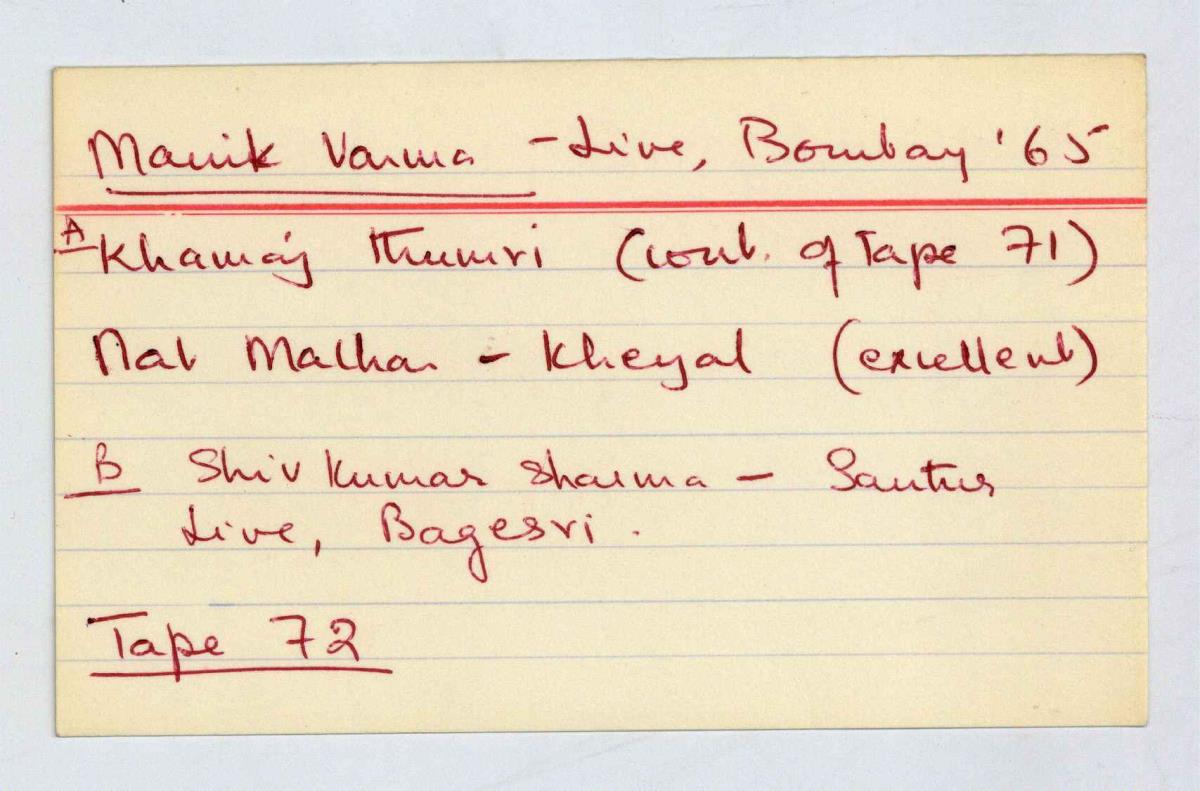 Manik Varma - Live, Bombay '65
A Khamaj thumri (cont. of Tape 71)
Nat Malhar - Kheyal (excellent)
B Shiv Kumar Sharma - Santur
Live, Bagesri.
Tape 72